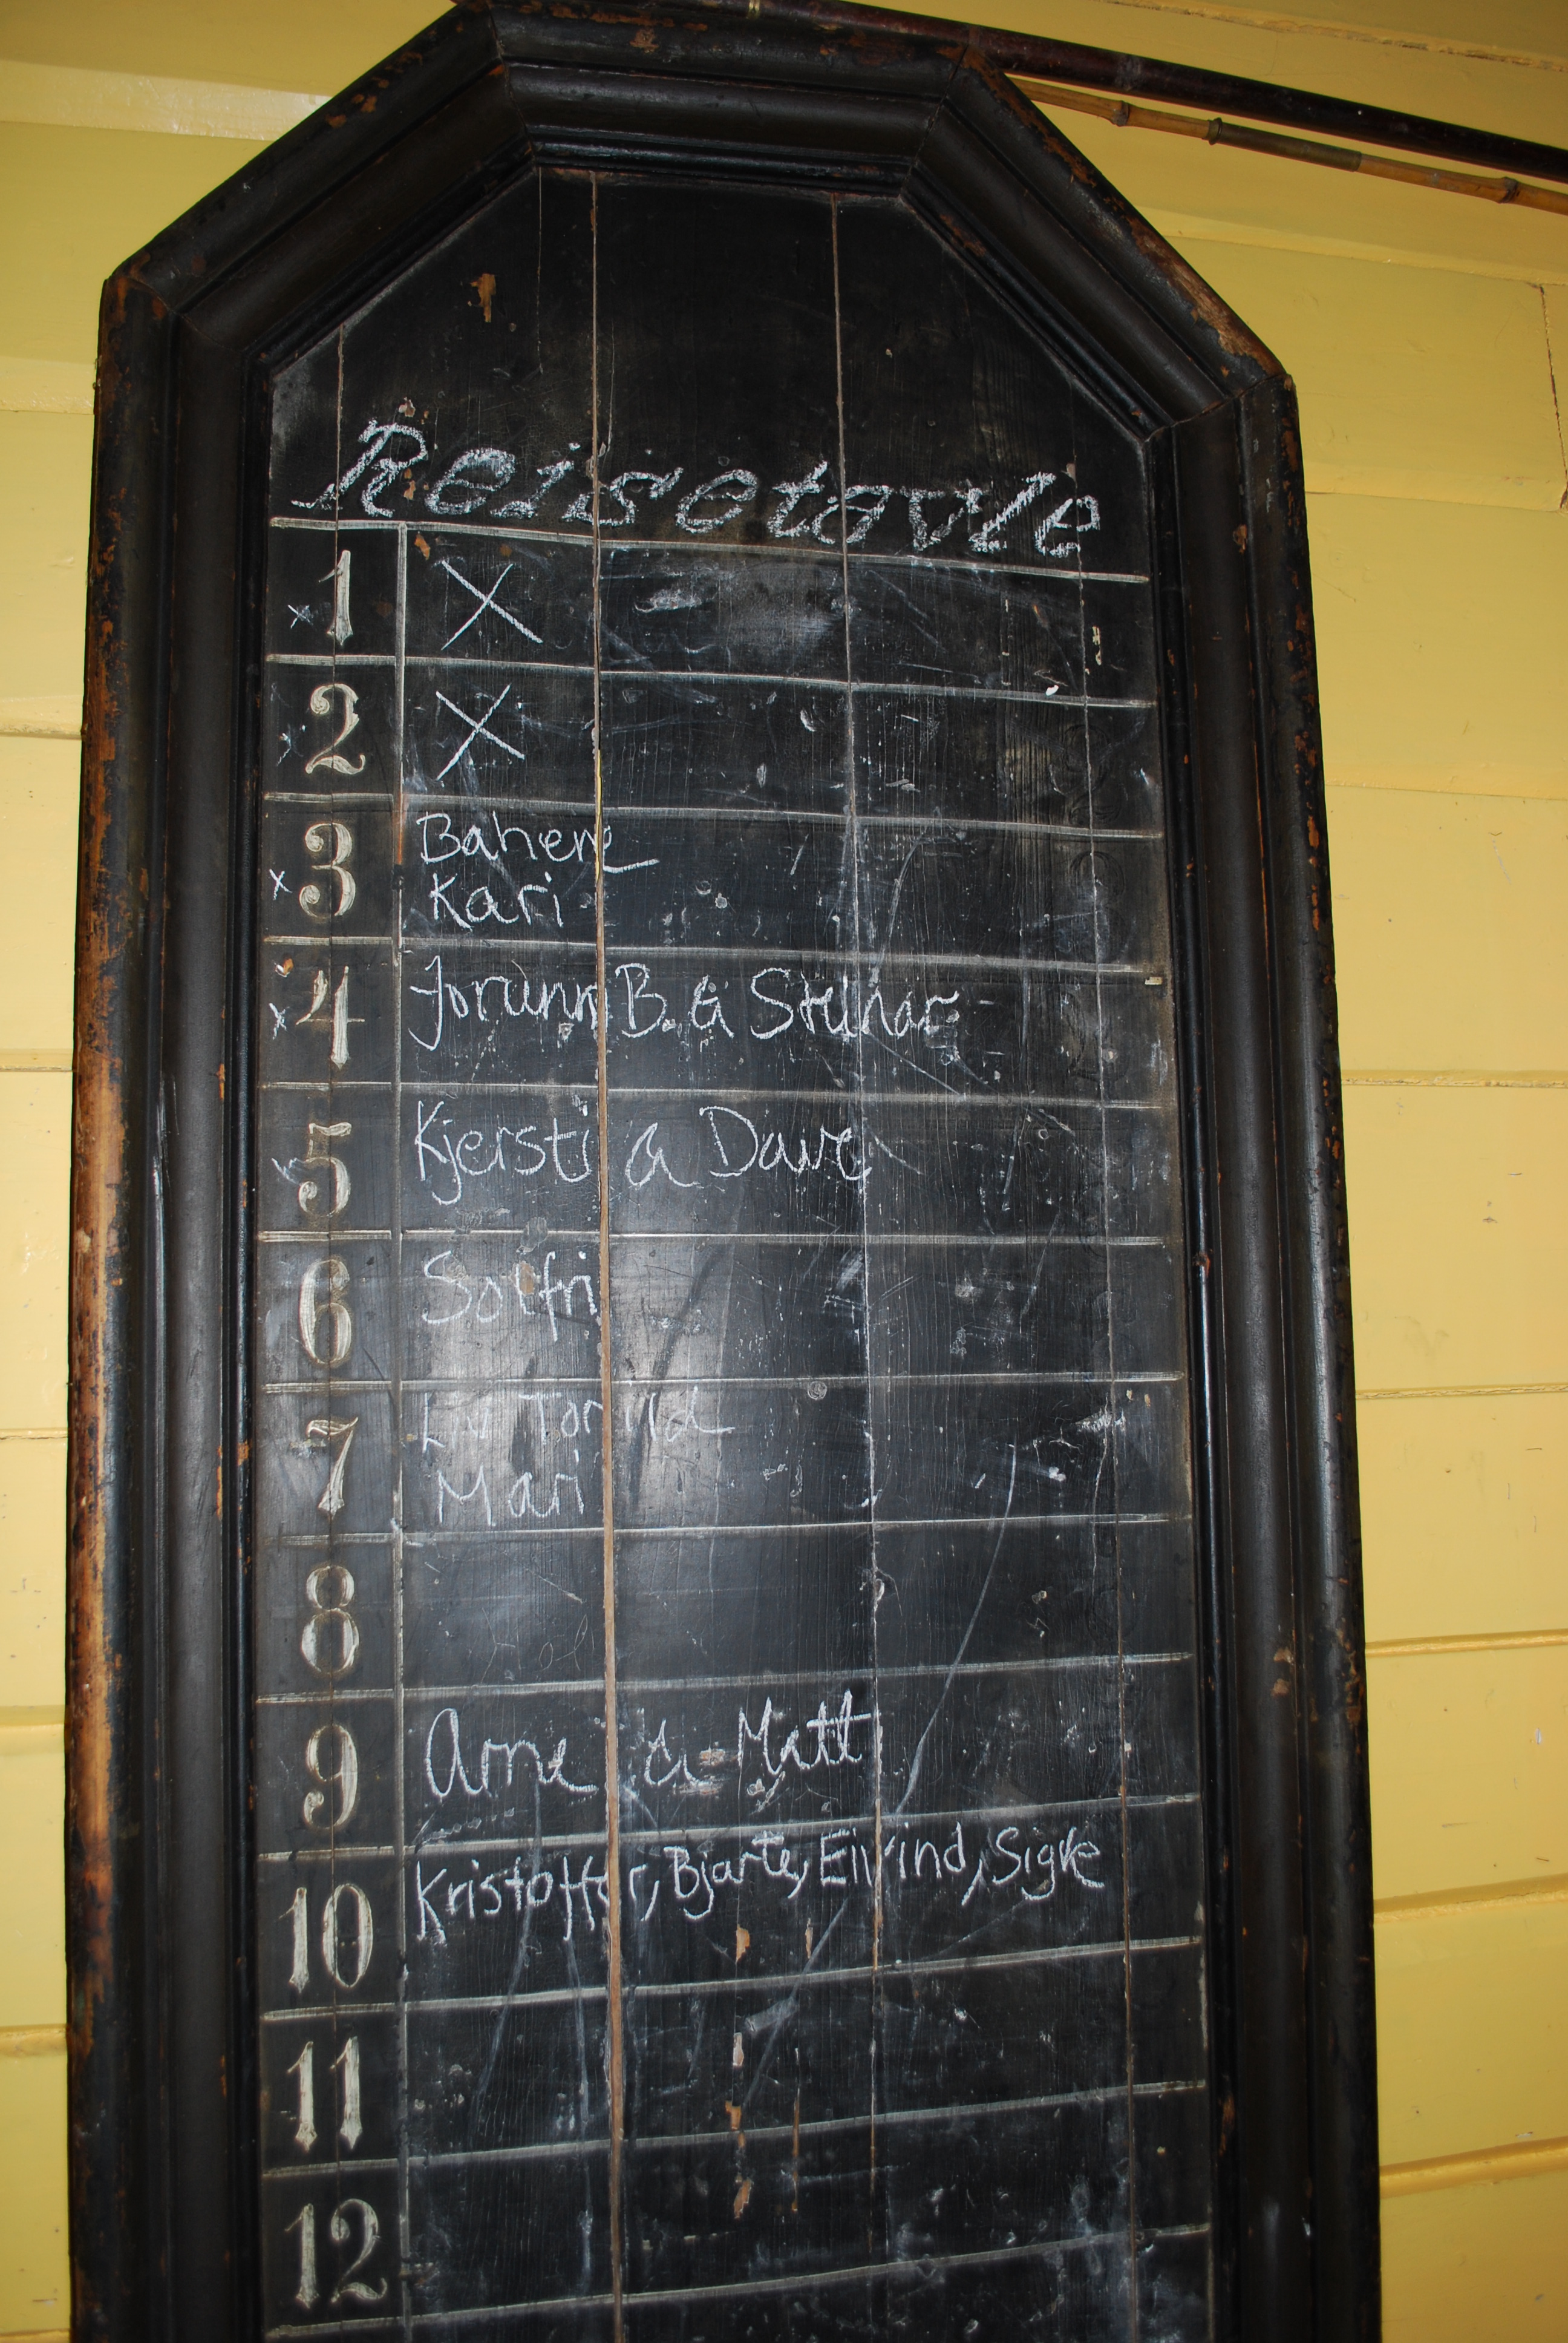 Reisetavle
x 1 X
2 X
x 3 Bahere
Kari
x 4 Jorunn B. & Steinar
5 Kjersti & Dave
6 Solfri
7 Liv Torild
Mari
8
9 Arne & Matt
10 Kristoffer, Bjarte, Eivind, Sigve
11
12